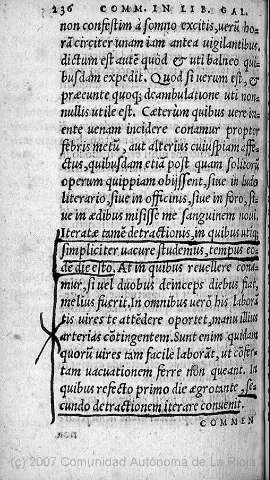 236 COMM. IN LIB. GAL.
non confestim à somno excitis, verũ ho-
rã circiter unam iam antea vigilantibus,
dictum est autẽ quòd & uti balneo qui-
busdam expedit. Quòd si verum est, &
præeunte quoq; deambulatione uti non-
nullis utile est. Cæterùm quibus vere in-
eunte venam incidere conamur propter
febris metũ, aut alterius cuiuspiam affe-
ctus, quibusdam etiã post quam solitorũ
operum quippiam obijssent, sive in ludo
literario, sive in officinis, sive in foro, si-
ve in ædibus misisse me sanguinem novi.
Iteratæ tamẽ detractionis, in quibus utiq;
simpliciter vacure studemus, tempus eo-
dẽ die esto. At in quibus revellere cona-
mur, si vel duobus deinceps diebus fiat,
melius fuerit. In omnibus verò his labora
tis vires te attẽdere oportet, manu illius
arterias cõtingentem. Sunt enim quidam
quorũ vires tam facile laborãt, ut cõfer-
tam vacuationem ferre non queant. In
quibus refecto primo die ægrotante, se-
cundo detractionem iterare convenit.
COMMEN
(c) 2007 Comunidad Autónoma de La Rioja